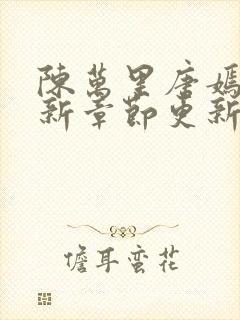 陳萬里唐嫣
新章節更新
儋耳蛮花